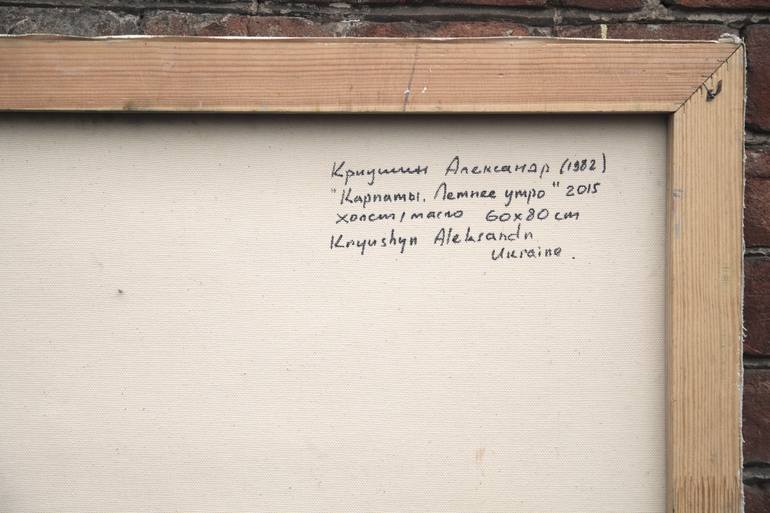 Криушин Александр (1982)
"Карпаты. Летнее утро" 2015
холст/масло 60x80 cm
Kryushyn Aleksandr
Ukraine.